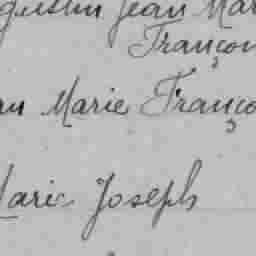 gustin Jean Mar
Françoi
an Marie Franço
Marie Joseph